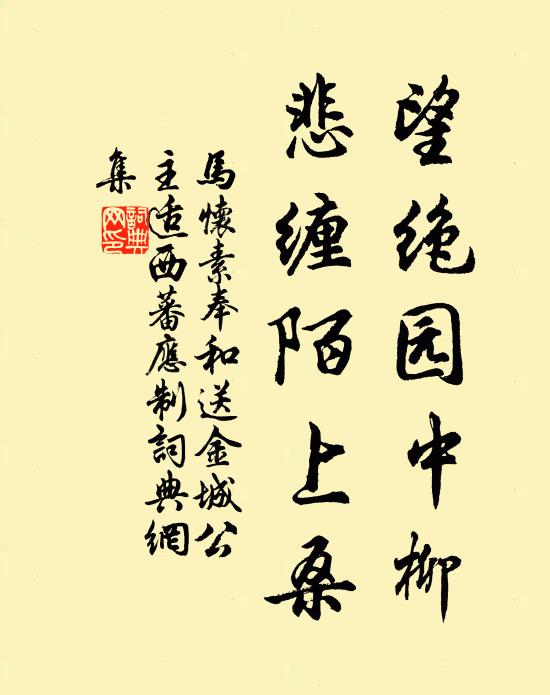 望绝园中柳
悲缠陌上桑
馬懷素奉和送金城公
主适西蕃應制詞典網
集
詞典网印